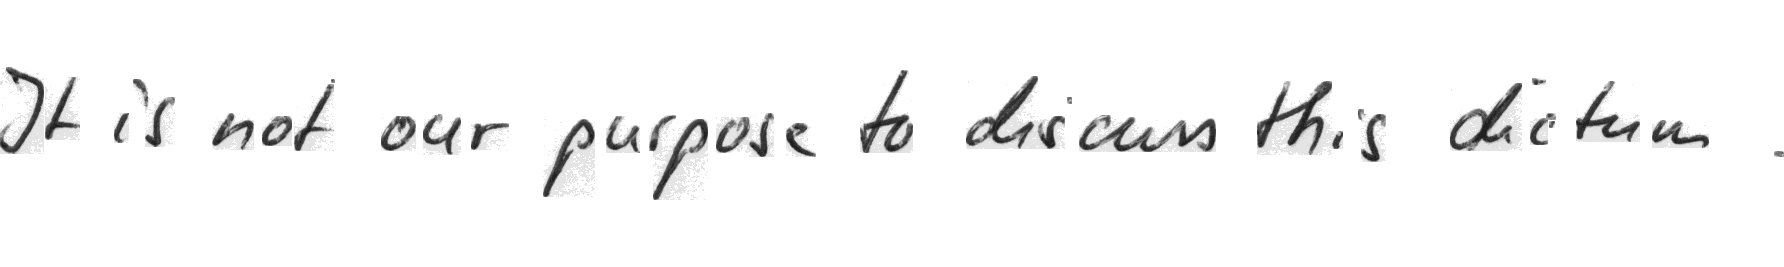 It is not our purpose to discuss this dictum.